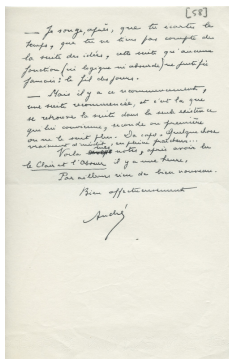 [58]
— Je songe, après, que tu écartes le
temps, que tu ne tiens pas compte de
la suite des idées, cette suite qu'aucune
fonction (ni logique ni absurde) ne justifie
jamais : le fil des jours.
— Mais il y a ce recommencement,
une suite recommencée, et c'est là que
se retrouve la suite dans la seule existence
qui lui convienne, seconde ou première
ou ne le sont plus. Da capo. Quelque chose
vraiment d'inédit, en pleine fraîcheur...
Voilà notre, après avoir lu
le Clair et l'Obscur, il y a une heure.
Par ailleurs rien de bien nouveau.
Bien affectueusement
André